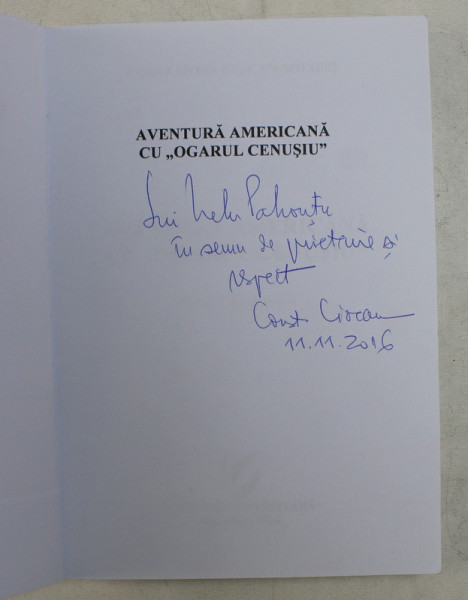 AVENTURĂ AMERICANĂ
CU „OGARUL CENUȘIU”
Lui Nelu Pahonțu
în semn de prietenie și
respect
Const. Ciocan
11.11.2016